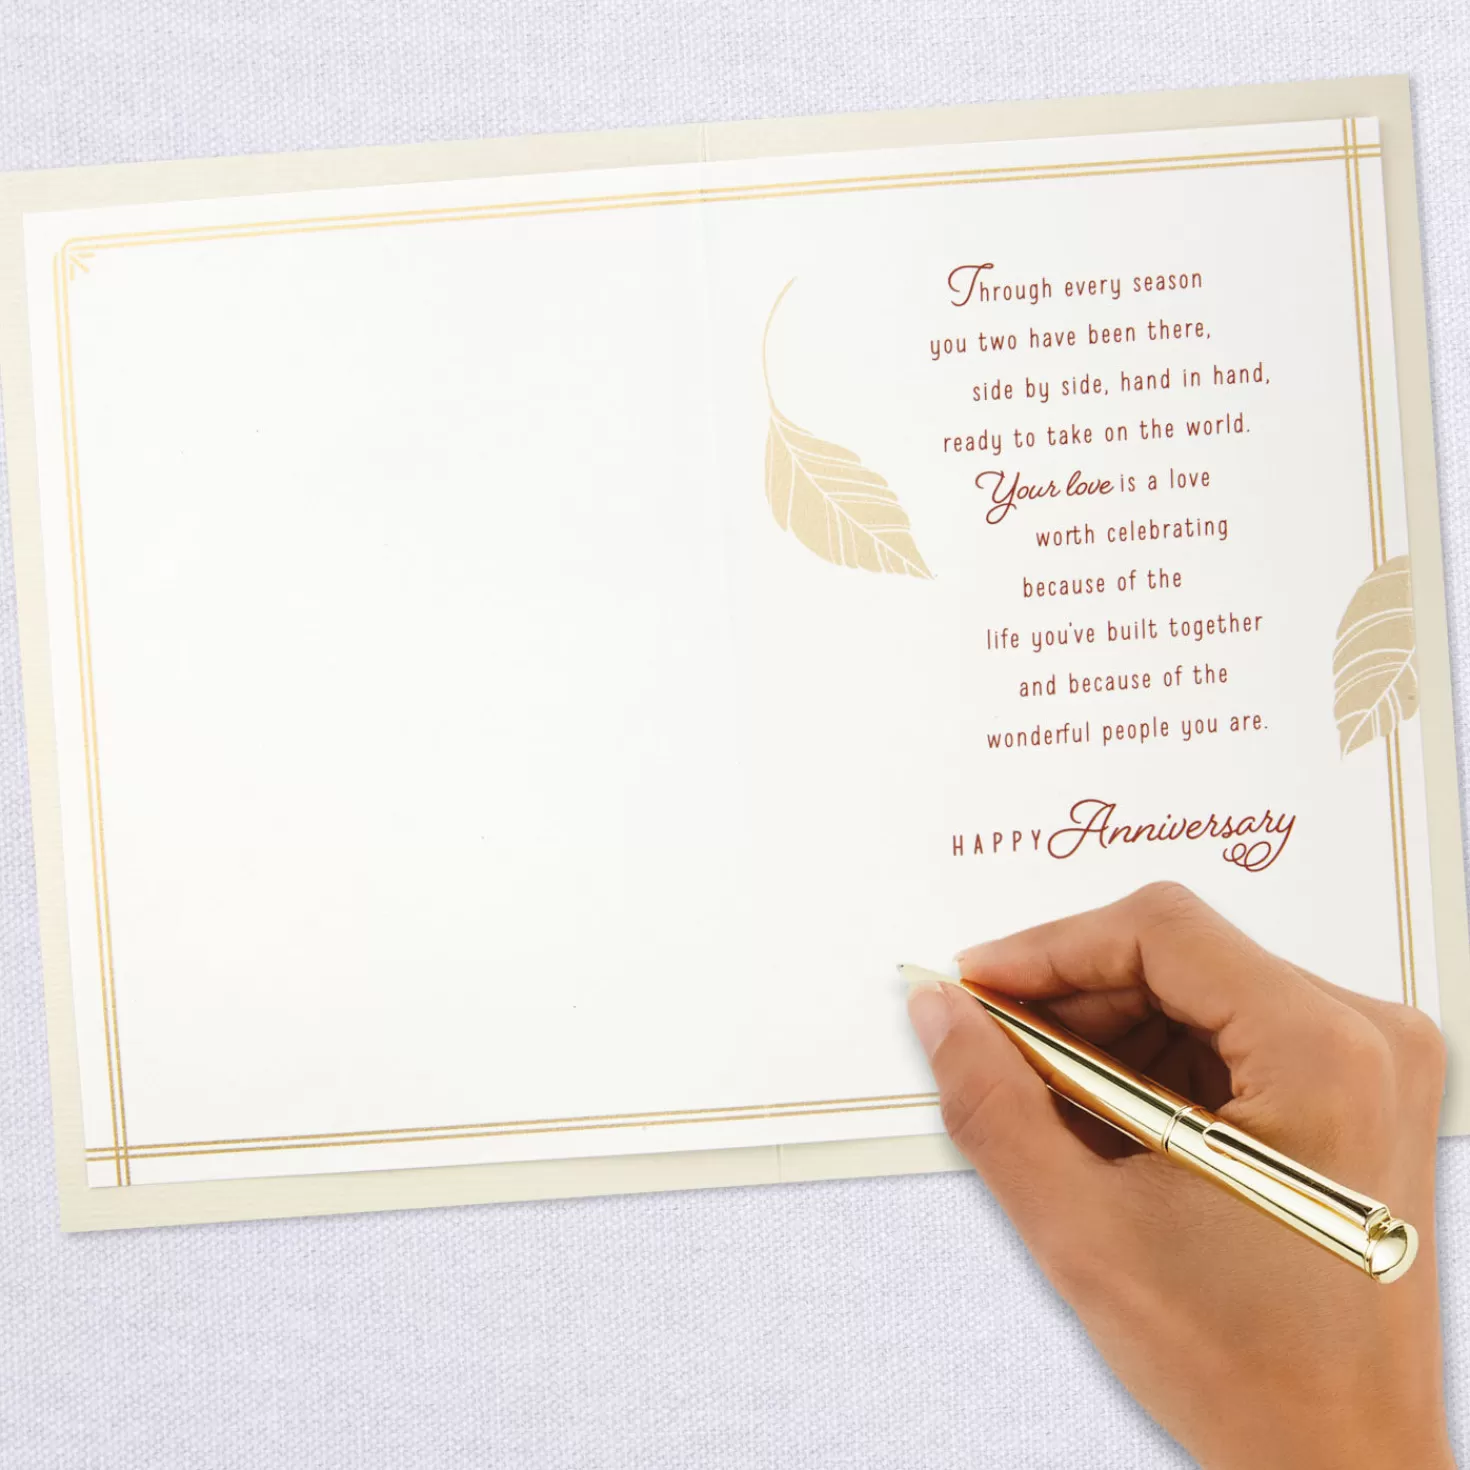 Through every season
you two have been there,
side by side, hand in hand,
ready to take on the world.
Your love is a love
worth celebrating
because of the
life you've built together
and because of the
wonderful people you are.
HAPPY Anniversary